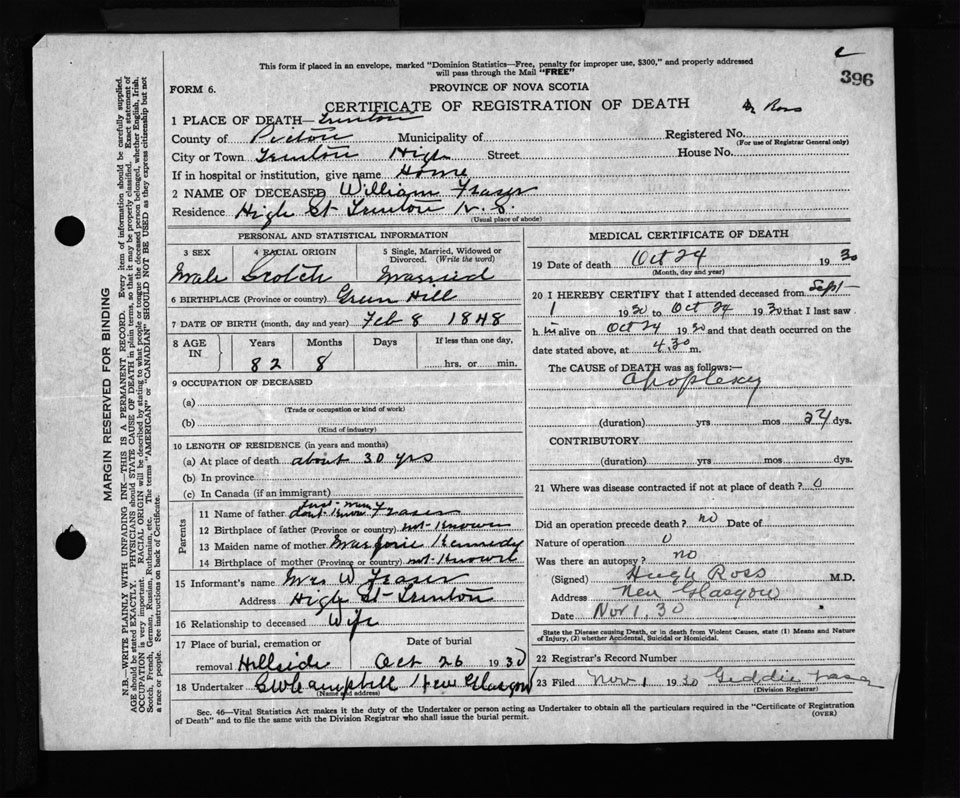 This form if placed in an envelope, marked "Dominion Statistics—Free, penalty for improper use, $300," and properly addressed
will pass through the Mail "FREE"
396
FORM 6.
PROVINCE OF NOVA SCOTIA
CERTIFICATE OF REGISTRATION OF DEATH
Ross
1 PLACE OF DEATH— Trenton
County of Pictou Municipality of Registered No.
(For use of Registrar General only)
City or Town Trenton High Street House No.
If in hospital or institution, give name Home
2 NAME OF DECEASED William Fraser
Residence High St Trenton N. S.
(Usual place of abode)
PERSONAL AND STATISTICAL INFORMATION
3 SEX 4 RACIAL ORIGIN 5 Single, Married, Widowed or Divorced. (Write the word)
Male Scotch Married
6 BIRTHPLACE (Province or country) Green Hill
7 DATE OF BIRTH (month, day and year) Feb 8 1848
8 AGE IN Years Months Days If less than one day,
82 8 hrs. or min.
9 OCCUPATION OF DECEASED
(a)
(Trade or occupation or kind of work)
(b)
(Kind of industry)
10 LENGTH OF RESIDENCE (in years and months)
(a) At place of death about 30 yrs
(b) In province
(c) In Canada (if an immigrant)
Parents
11 Name of father dont know Fraser
12 Birthplace of father (Province or country) not Known
13 Maiden name of mother Marjorie Kennedy
14 Birthplace of mother (Province or country) not Known
15 Informant's name Mrs W Fraser
Address High St Trenton
16 Relationship to deceased Wife
17 Place of burial, cremation or Date of burial
removal Hillside Oct 26 1930
18 Undertaker Campbell New Glasgow
(Name and address)
MEDICAL CERTIFICATE OF DEATH
19 Date of death Oct 24 1930
(Month, day and year)
20 I HEREBY CERTIFY that I attended deceased from Sept
1 1930 to Oct 24 1930 that I last saw
h im alive on Oct 24 1930 and that death occurred on the
date stated above, at 4.30 m.
The CAUSE of DEATH was as follows:—
Apoplexy
(duration) yrs mos 24 dys.
CONTRIBUTORY
(duration) yrs mos dys.
21 Where was disease contracted if not at place of death? 0
Did an operation precede death? no Date of
Nature of operation 0
Was there an autopsy? no
(Signed) Hugh Ross M.D.
Address New Glasgow
Date Nov 1, 30
State the Disease causing Death, or in death from Violent Causes, state (1) Means and Nature
of Injury, (2) whether Accidental, Suicidal or Homicidal.
22 Registrar's Record Number
23 Filed Nov 1 1930 Geddie Fraser
(Division Registrar)
Sec. 46—Vital Statistics Act makes it the duty of the Undertaker or person acting as Undertaker to obtain all the particulars required in the "Certificate of Registration
of Death" and to file the same with the Division Registrar who shall issue the burial permit.
(OVER)
MARGIN RESERVED FOR BINDING
N.B.—WRITE PLAINLY WITH UNFADING INK—THIS IS A PERMANENT RECORD. Every item of information should be carefully supplied.
AGE should be stated EXACTLY. PHYSICIANS should STATE CAUSE OF DEATH in plain terms, so that it may be properly classified. Exact statement of
OCCUPATION is very important. RACIAL ORIGIN will be described by stating to what people or tongue the deceased person belonged, whether English, Irish,
Scotch, French, German, Russian, Ruthenian, etc. The terms "AMERICAN" or "CANADIAN" SHOULD NOT BE USED as they express citizenship but not
a race or people. See instructions on back of Certificate.